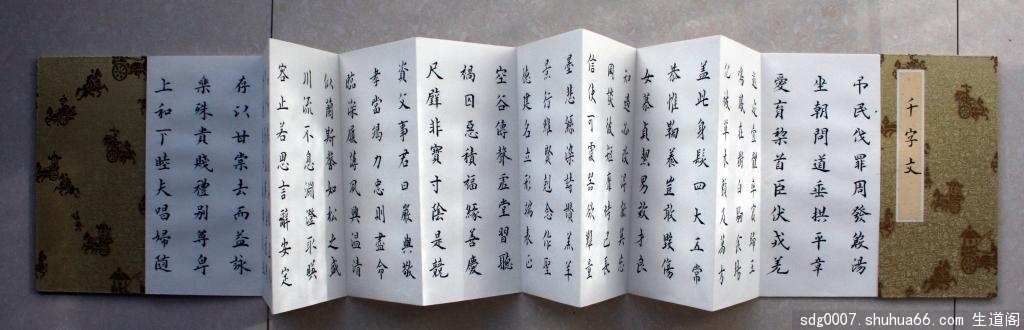 千字文
弔民伐罪周發殷湯
坐朝問道垂拱平章
愛育黎首臣伏戎羌
遐迩壹體率賓歸王
鳴鳳在樹白駒食場
化被草木賴及萬方
盖此身髮四大五常
恭惟鞠養豈敢毀傷
女慕貞絜男效才良
知過必改得能莫忘
罔談彼短靡恃己長
信使可覆器欲難量
墨悲絲染詩讚羔羊
景行維賢剋念作聖
德建名立形端表正
空谷傳聲虛堂習聽
禍因惡積福緣善慶
尺璧非寶寸陰是競
資父事君曰嚴與敬
孝當竭力忠則盡命
臨深履薄夙興溫清
似蘭斯馨如松之盛
川流不息淵澄取暎
容止若思言辭安定
存以甘棠去而益詠
樂殊貴賤禮別尊卑
上和下睦夫唱婦隨
sdg0007.shuhua66.com 生道阁